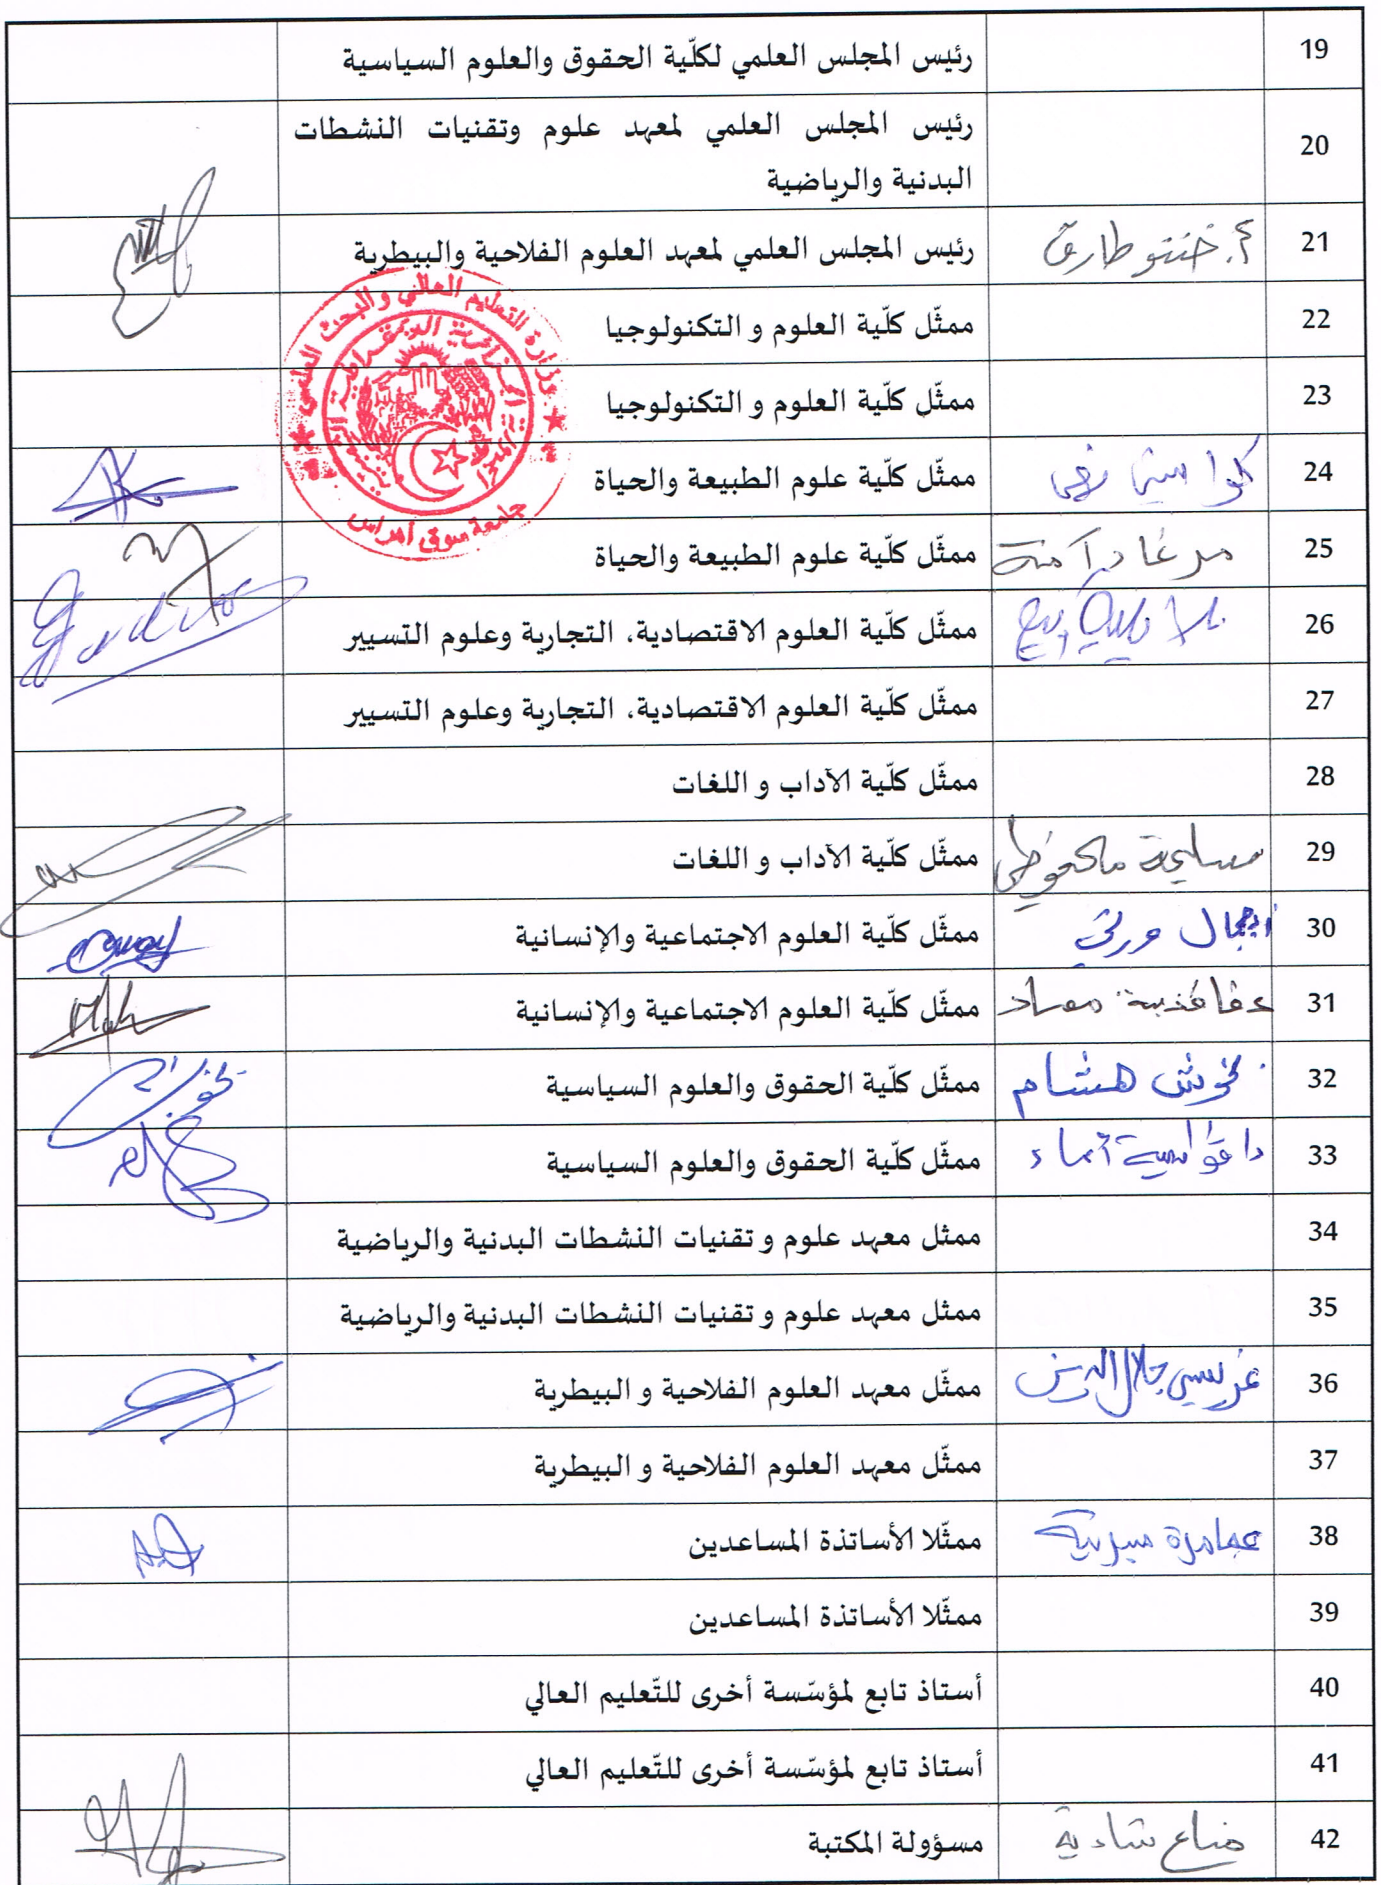 19 رئيس المجلس العلمي لكلّية الحقوق والعلوم السياسية
20 رئيس المجلس العلمي لمعهد علوم وتقنيات النشطات
البدنية والرياضية
21 أ. خنتو طارق رئيس المجلس العلمي لمعهد العلوم الفلاحية والبيطرية
22 ممثّل كلّية العلوم و التكنولوجيا
23 ممثّل كلّية العلوم و التكنولوجيا
24 ممثّل كلّية علوم الطبيعة والحياة
25 آمنة ممثّل كلّية علوم الطبيعة والحياة
26 ممثّل كلّية العلوم الاقتصادية، التجارية وعلوم التسيير
27 ممثّل كلّية العلوم الاقتصادية، التجارية وعلوم التسيير
28 ممثّل كلّية الآداب و اللغات
29 مسليحة محفوظي ممثّل كلّية الآداب و اللغات
30 ممثّل كلّية العلوم الاجتماعية والإنسانية
31 ممثّل كلّية العلوم الاجتماعية والإنسانية
32 نخوش هشام ممثّل كلّية الحقوق والعلوم السياسية
33 ممثّل كلّية الحقوق والعلوم السياسية
34 ممثل معهد علوم و تقنيات النشطات البدنية والرياضية
35 ممثل معهد علوم و تقنيات النشطات البدنية والرياضية
36 جلال الدين ممثّل معهد العلوم الفلاحية و البيطرية
37 ممثّل معهد العلوم الفلاحية و البيطرية
38 عمامرة صبرينة ممثّلا الأساتذة المساعدين
39 ممثّلا الأساتذة المساعدين
40 أستاذ تابع لمؤسّسة أخرى للتّعليم العالي
41 أستاذ تابع لمؤسّسة أخرى للتّعليم العالي
42 مناع شادية مسؤولة المكتبة
وزارة التعليم العالي و البحث العلمي
الجمهورية الجزائرية الديمقراطية الشعبية
جامعة سوق أهراس